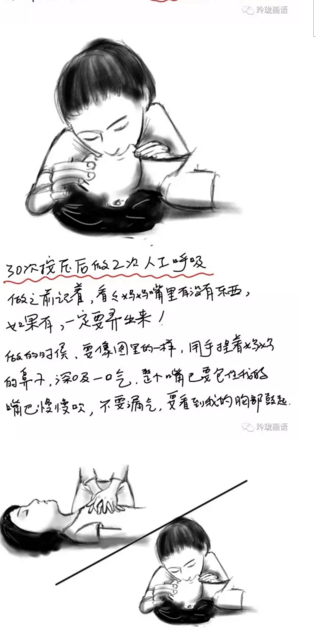 玲珑画语
30次按压后做2次人工呼吸
做之前记着，看看妈妈嘴里有没有东西，
如果有，一定要弄出来！
做的时候，要像图里的一样，用手捏着妈妈
的鼻子，深吸一口气，整个嘴巴要包住我的
嘴巴慢慢吹，不要漏气，要看到我的胸部鼓起
玲珑画语